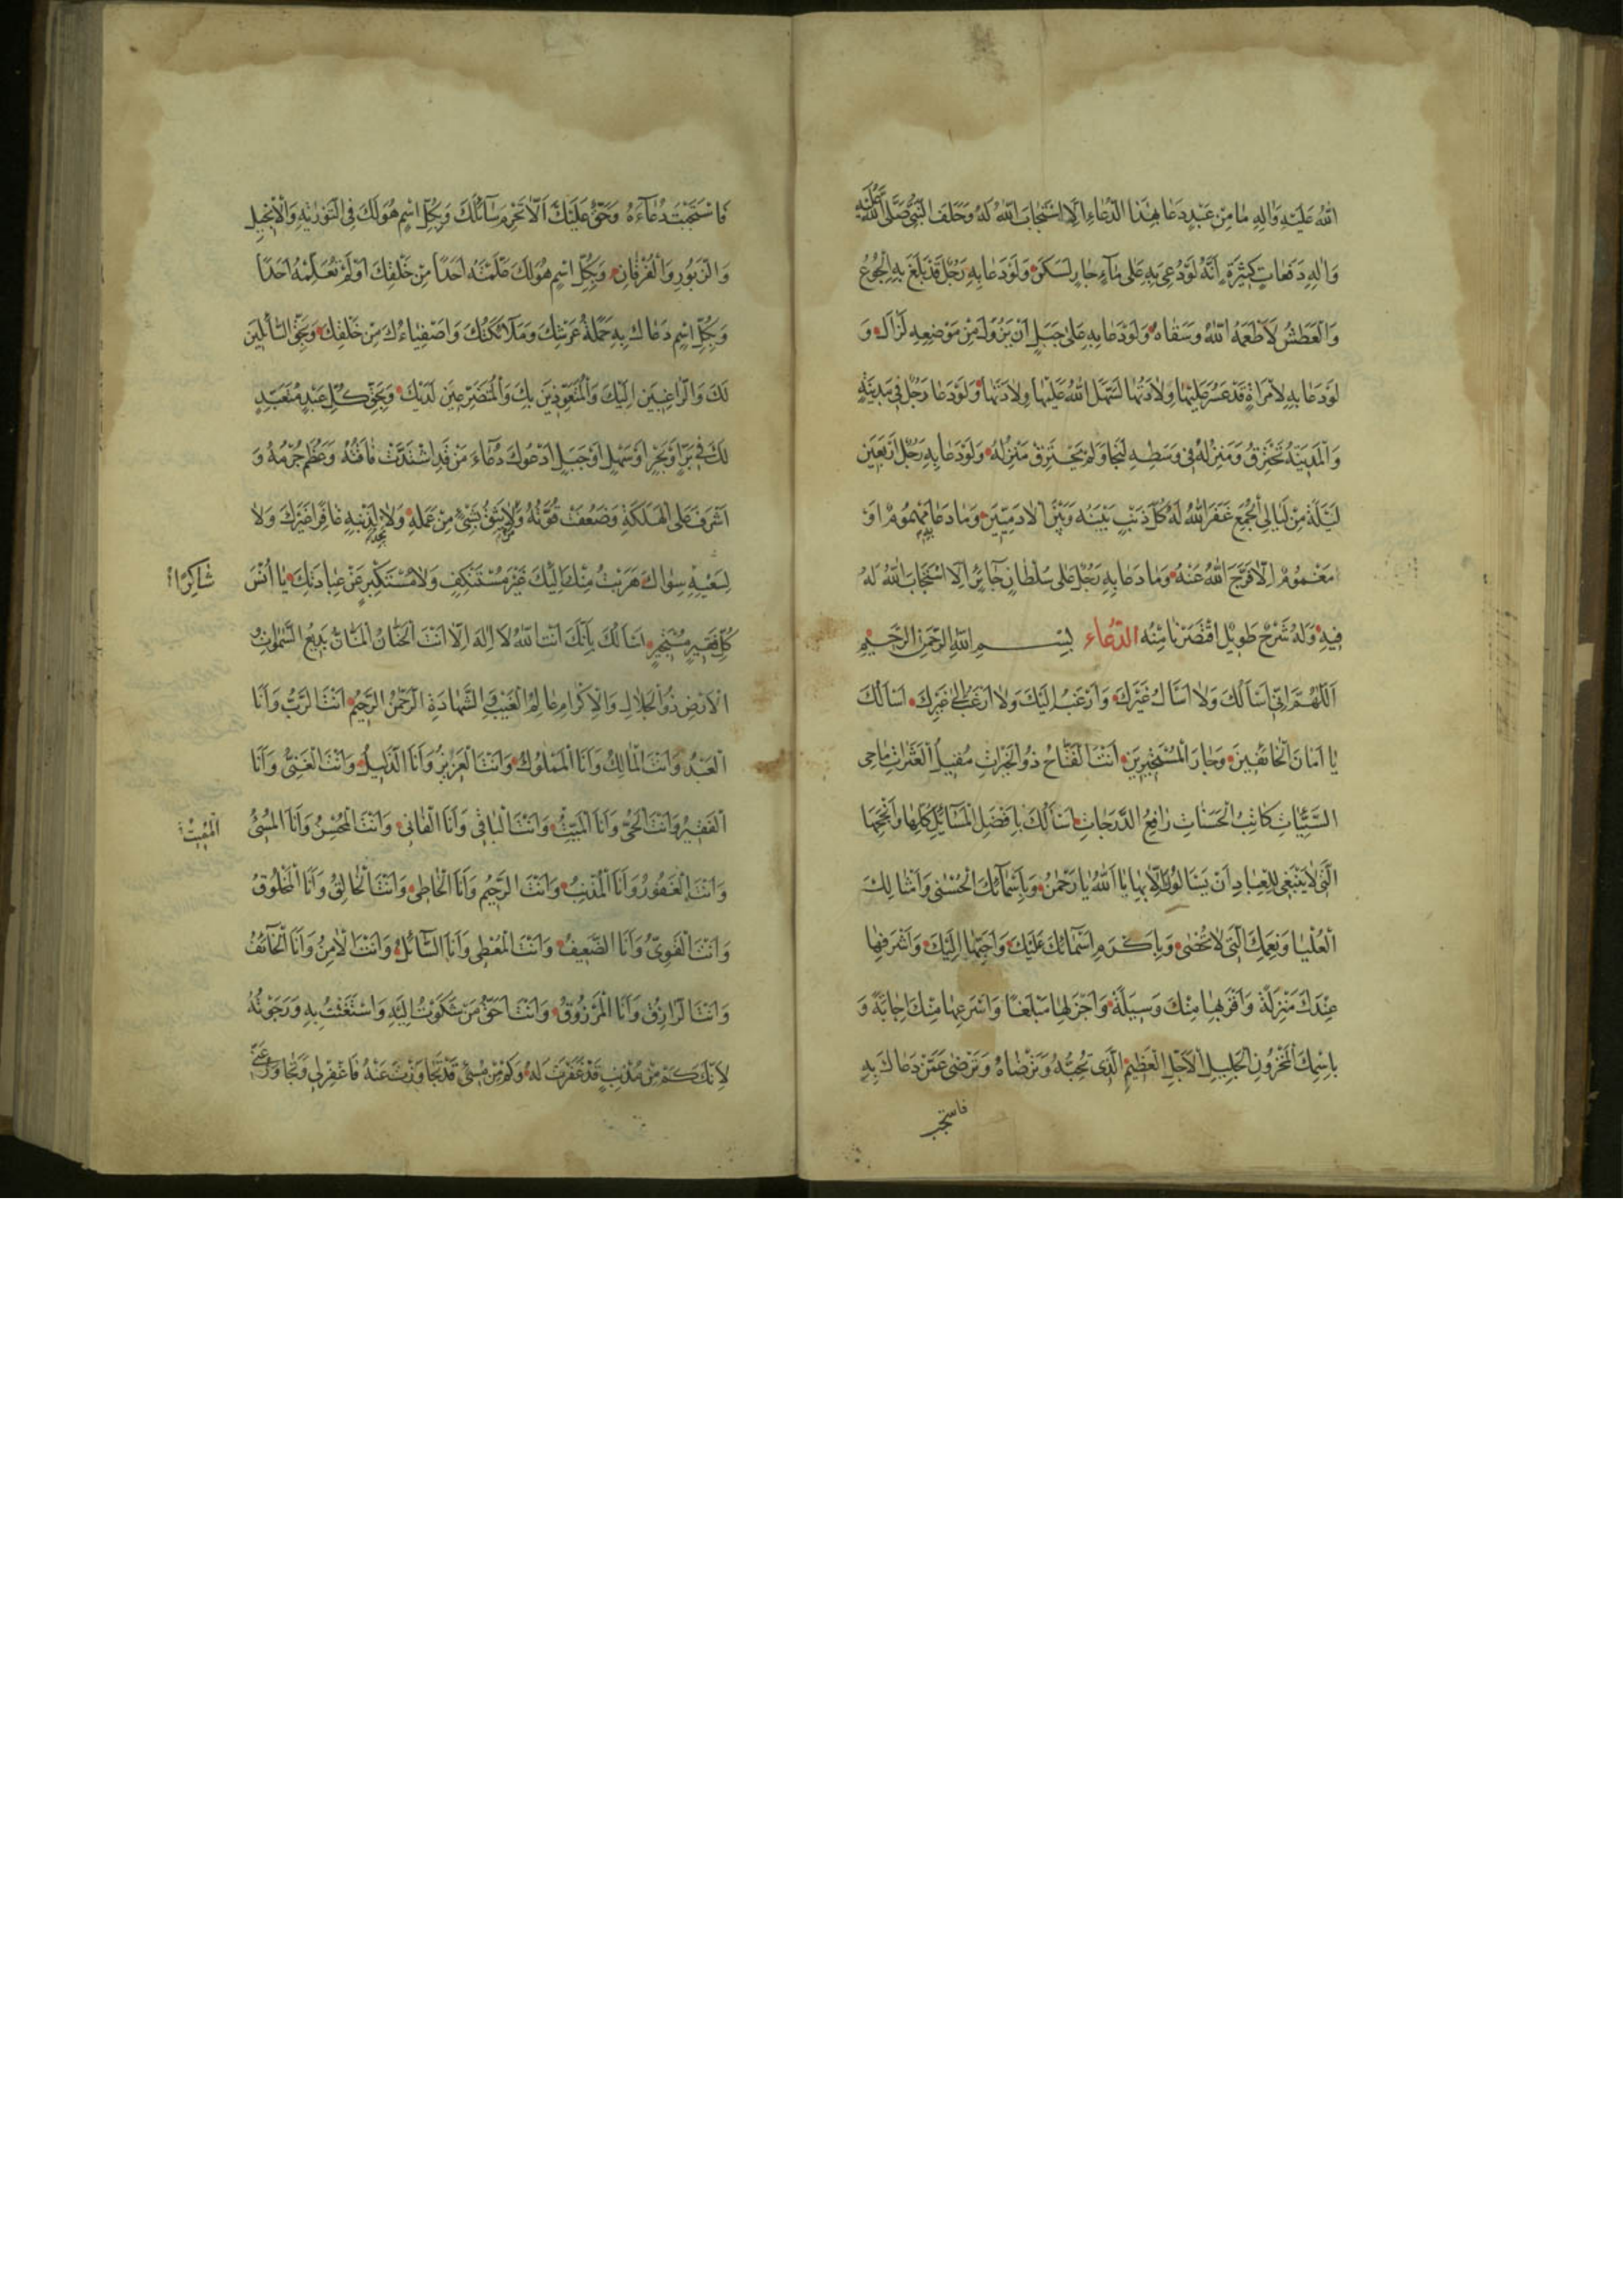 اللهُ عَلَيْهِ وَالِهِ مَا مِنْ عَبْدٍ دَعَا بِهٰذَا الدُّعَاءِ اِلَّا اسْتَجَابَ اللهُ لَهُ وَحَلَفَ النَّبِيُّ صَلَّى اللهُ عَلَيْهِ
وَالِهِ دَفَعَاتٍ كَثِيْرَةٍ اَنَّهُ لَوْ دُعِيَ بِهِ عَلٰى مَآءٍ جَارٍ لَسَكَنَ وَلَوْ دَعَا بِهِ رَجُلٌ قَدْ بَلَغَ بِهِ الْجُوْعُ
وَالْعَطَشُ لَاَطْعَمَهُ اللهُ وَسَقَاهُ وَلَوْ دَعَا بِهِ عَلٰى جَبَلٍ اَنْ يَزُوْلَ مِنْ مَوْضِعِهِ لَزَالَ وَ
لَوْ دَعَا بِهِ لِامْرَاَةٍ قَدْ عَسُرَ عَلَيْهَا وِلَادَتُهَا لَسَهَّلَ اللهُ عَلَيْهَا وِلَادَتَهَا وَلَوْ دَعَا رَجُلٌ فِيْ مَدِيْنَةٍ
وَالْمَدِيْنَةُ تَحْتَرِقُ وَمَنْزِلُهُ فِيْ وَسَطِهِ لَنَجَا وَلَمْ يَحْتَرِقْ مَنْزِلُهُ وَلَوْ دَعَا بِهِ رَجُلٌ اَرْبَعِيْنَ
لَيْلَةً مِنْ لَيَالِي الْجُمَعِ غَفَرَ اللهُ لَهُ كُلَّ ذَنْبٍ بَيْنَهُ وَبَيْنَ الْاٰدَمِيِّيْنَ وَمَا دَعَا بِهِ مَهْمُوْمٌ اَوْ
مَغْمُوْمٌ اِلَّا فَرَّجَ اللهُ عَنْهُ وَمَا دَعَا بِهِ رَجُلٌ عَلٰى سُلْطَانٍ جَائِرٍ اِلَّا اسْتَجَابَ اللهُ لَهُ
فِيْهِ وَلَهُ شَرْحٌ طَوِيْلٌ اقْتَصَرْنَا مِنْهُ الدُّعَاء بِسْمِ اللهِ الرَّحْمٰنِ الرَّحِيْمِ
اَللّٰهُمَّ اِنِّيْ اَسْاَلُكَ وَلَا اَسْاَلُ غَيْرَكَ وَاَرْغَبُ اِلَيْكَ وَلَا اَرْغَبُ اِلٰى غَيْرِكَ اَسْاَلُكَ
يَا اَمَانَ الْخَائِفِيْنَ وَجَارَ الْمُسْتَجِيْرِيْنَ اَنْتَ الْفَتَّاحُ ذُو الْخَيْرَاتِ مُقِيْلُ الْعَثَرَاتِ مَاحِي
السَّيِّئَاتِ كَاتِبُ الْحَسَنَاتِ رَافِعُ الدَّرَجَاتِ اَسْاَلُكَ بِاَفْضَلِ الْمَسَائِلِ كُلِّهَا وَاَنْجَحِهَا
الَّتِيْ لَا يَنْبَغِيْ لِلْعِبَادِ اَنْ يَسْاَلُوْكَ اِلَّا بِهَا يَا اَللهُ يَا رَحْمٰنُ وَبِاَسْمَآئِكَ الْحُسْنٰى وَاَمْثَالِكَ
الْعُلْيَا وَنِعَمِكَ الَّتِيْ لَا تُحْصٰى وَبِاَكْرَمِ اَسْمَائِكَ عَلَيْكَ وَاَحَبِّهَا اِلَيْكَ وَاَشْرَفِهَا
عِنْدَكَ مَنْزِلَةً وَاَقْرَبِهَا مِنْكَ وَسِيْلَةً وَاَجْزَلِهَا مَبْلَغًا وَاَسْرَعِهَا مِنْكَ اِجَابَةً وَ
بِاسْمِكَ الْمَخْزُوْنِ الْجَلِيْلِ الْاَجَلِّ الْعَظِيْمِ الَّذِيْ تُحِبُّهُ وَتَرْضَاهُ وَتَرْضٰى عَمَّنْ دَعَاكَ بِهِ
فَاسْتَجَبْتَ دُعَآءَهُ وَحَقٌّ عَلَيْكَ اَلَّا تَحْرِمَ سَائِلَكَ وَبِكُلِّ اسْمٍ هُوَ لَكَ فِي التَّوْرٰيةِ وَالْاِنْجِيْلِ
وَالزَّبُوْرِ وَالْفُرْقَانِ وَبِكُلِّ اسْمٍ هُوَ لَكَ عَلَّمْتَهُ اَحَدًا مِنْ خَلْقِكَ اَوْ لَمْ تُعَلِّمْهُ اَحَدًا
وَبِكُلِّ اسْمٍ دَعَاكَ بِهِ حَمَلَةُ عَرْشِكَ وَمَلَآئِكَتُكَ وَاَصْفِيَاءُكَ مِنْ خَلْقِكَ وَبِحَقِّ السَّائِلِيْنَ
لَكَ وَالرَّاغِبِيْنَ اِلَيْكَ وَالْمُتَعَوِّذِيْنَ بِكَ وَالْمُتَضَرِّعِيْنَ لَدَيْكَ وَبِحَقِّ كُلِّ عَبْدٍ مُتَعَبِّدٍ
لَكَ فِيْ بَرٍّ اَوْ بَحْرٍ اَوْ سَهْلٍ اَوْ جَبَلٍ اَدْعُوْكَ دُعَآءَ مَنْ قَدِ اشْتَدَّتْ فَاقَتُهُ وَعَظُمَ جُرْمُهُ وَ
اَشْرَفَ عَلَى الْهَلَكَةِ وَضَعُفَتْ قُوَّتُهُ وَمَنْ لَا يَثِقُ بِشَيْءٍ مِنْ عَمَلِهِ وَلَا يَجِدُ لِذَنْبِهِ غَافِرًا غَيْرَكَ وَلَا
لِسَعْيِهِ سِوَاكَ هَرَبْتُ مِنْكَ اِلَيْكَ غَيْرَ مُسْتَنْكِفٍ وَلَا مُسْتَكْبِرٍ عَنْ عِبَادَتِكَ يَا اُنْسَ
شَاكِرًا
كُلِّ فَقِيْرٍ مُسْتَجِيْرٍ اَسْاَلُكَ بِاَنَّكَ اَنْتَ اللهُ لَا اِلٰهَ اِلَّا اَنْتَ الْحَنَّانُ الْمَنَّانُ بَدِيْعُ السَّمٰوَاتِ وَ
الْاَرْضِ ذُو الْجَلَالِ وَالْاِكْرَامِ عَالِمُ الْغَيْبِ وَالشَّهَادَةِ الرَّحْمٰنُ الرَّحِيْمُ اَنْتَ الرَّبُّ وَاَنَا
الْعَبْدُ وَاَنْتَ الْمَالِكُ وَاَنَا الْمَمْلُوْكُ وَاَنْتَ الْعَزِيْزُ وَاَنَا الذَّلِيْلُ وَاَنْتَ الْغَنِيُّ وَاَنَا
الْفَقِيْرُ وَاَنْتَ الْحَيُّ وَاَنَا الْمَيِّتُ وَاَنْتَ الْبَاقِيْ وَاَنَا الْفَانِيْ وَاَنْتَ الْمُحْسِنُ وَاَنَا الْمُسِيْءُ
وَاَنْتَ الْغَفُوْرُ وَاَنَا الْمُذْنِبُ وَاَنْتَ الرَّحِيْمُ وَاَنَا الْخَاطِئُ وَاَنْتَ الْخَالِقُ وَاَنَا الْمَخْلُوْقُ
وَاَنْتَ الْقَوِيُّ وَاَنَا الضَّعِيْفُ وَاَنْتَ الْمُعْطِيْ وَاَنَا السَّآئِلُ وَاَنْتَ الْاٰمِنُ وَاَنَا الْخَآئِفُ
وَاَنْتَ الرَّازِقُ وَاَنَا الْمَرْزُوْقُ وَاَنْتَ اَحَقُّ مَنْ شَكَوْتُ اِلَيْهِ وَاسْتَغَثْتُ بِهِ وَرَجَوْتُهُ
لِاَنَّكَ كَمْ مِنْ مُذْنِبٍ قَدْ غَفَرْتَ لَهُ وَكَمْ مِنْ مُسِيْءٍ قَدْ تَجَاوَزْتَ عَنْهُ فَاغْفِرْ لِيْ وَتَجَاوَزْ عَنِّيْ